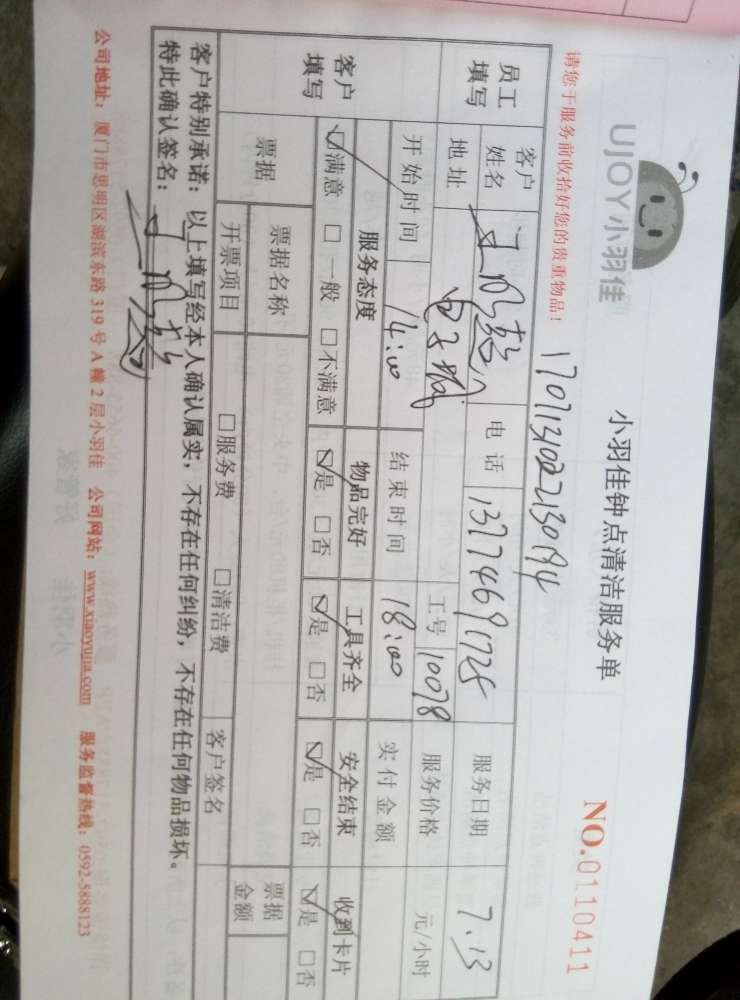 UJOY小羽佳
小羽佳钟点清洁服务单
NO.0110411
请您于服务前收拾好您的贵重物品！
员工填写 客户姓名 电话 服务日期 7.13
地址 工号 10078 服务价格 元/小时
开始时间 14:00 结束时间 18:00 实付金额
客户填写 服务态度 物品完好 工具齐全 安全结束 收到卡片
☑满意 □一般 □不满意 ☑是 □否 ☑是 □否 ☑是 □否 ☑是 □否
票据 票据名称 客户签名 票据金额
开票项目 □服务费 □清洁费
客户特别承诺：以上填写经本人确认属实，不存在任何纠纷，不存在任何物品损坏。
特此确认签名：
公司地址：厦门市思明区湖滨东路319号A幢2层小羽佳 公司网站：www.xiaoyujia.com 服务监督热线：0592-5888123